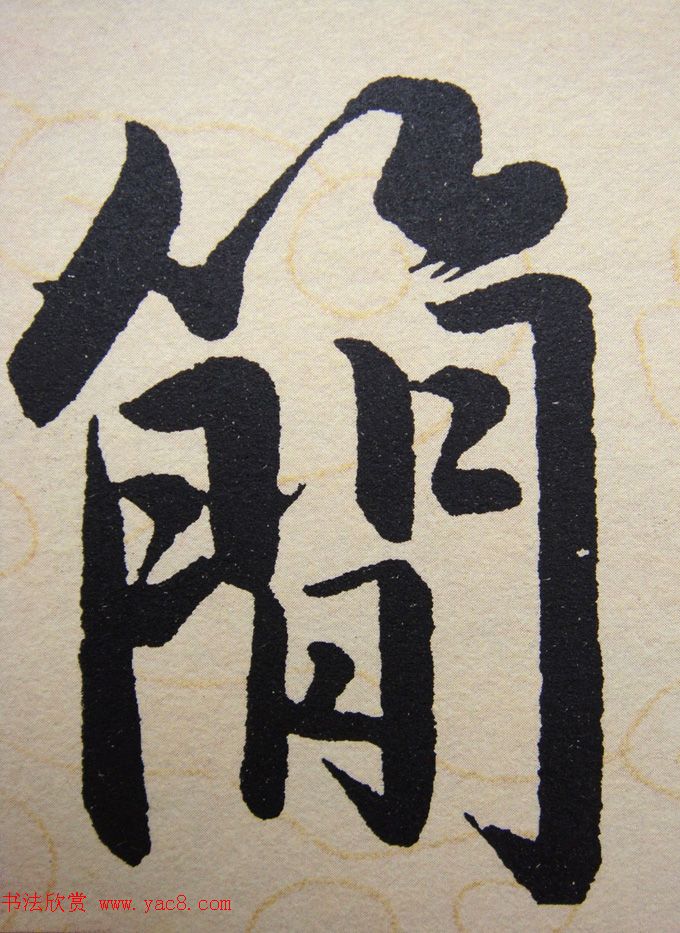 簡
书法欣赏 www.yac8.com